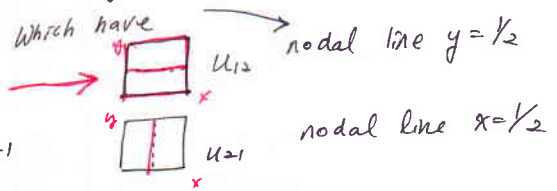 Which have
nodal line y = 1/2
y
u12
x
y
u21
nodal line x = 1/2
-1
x